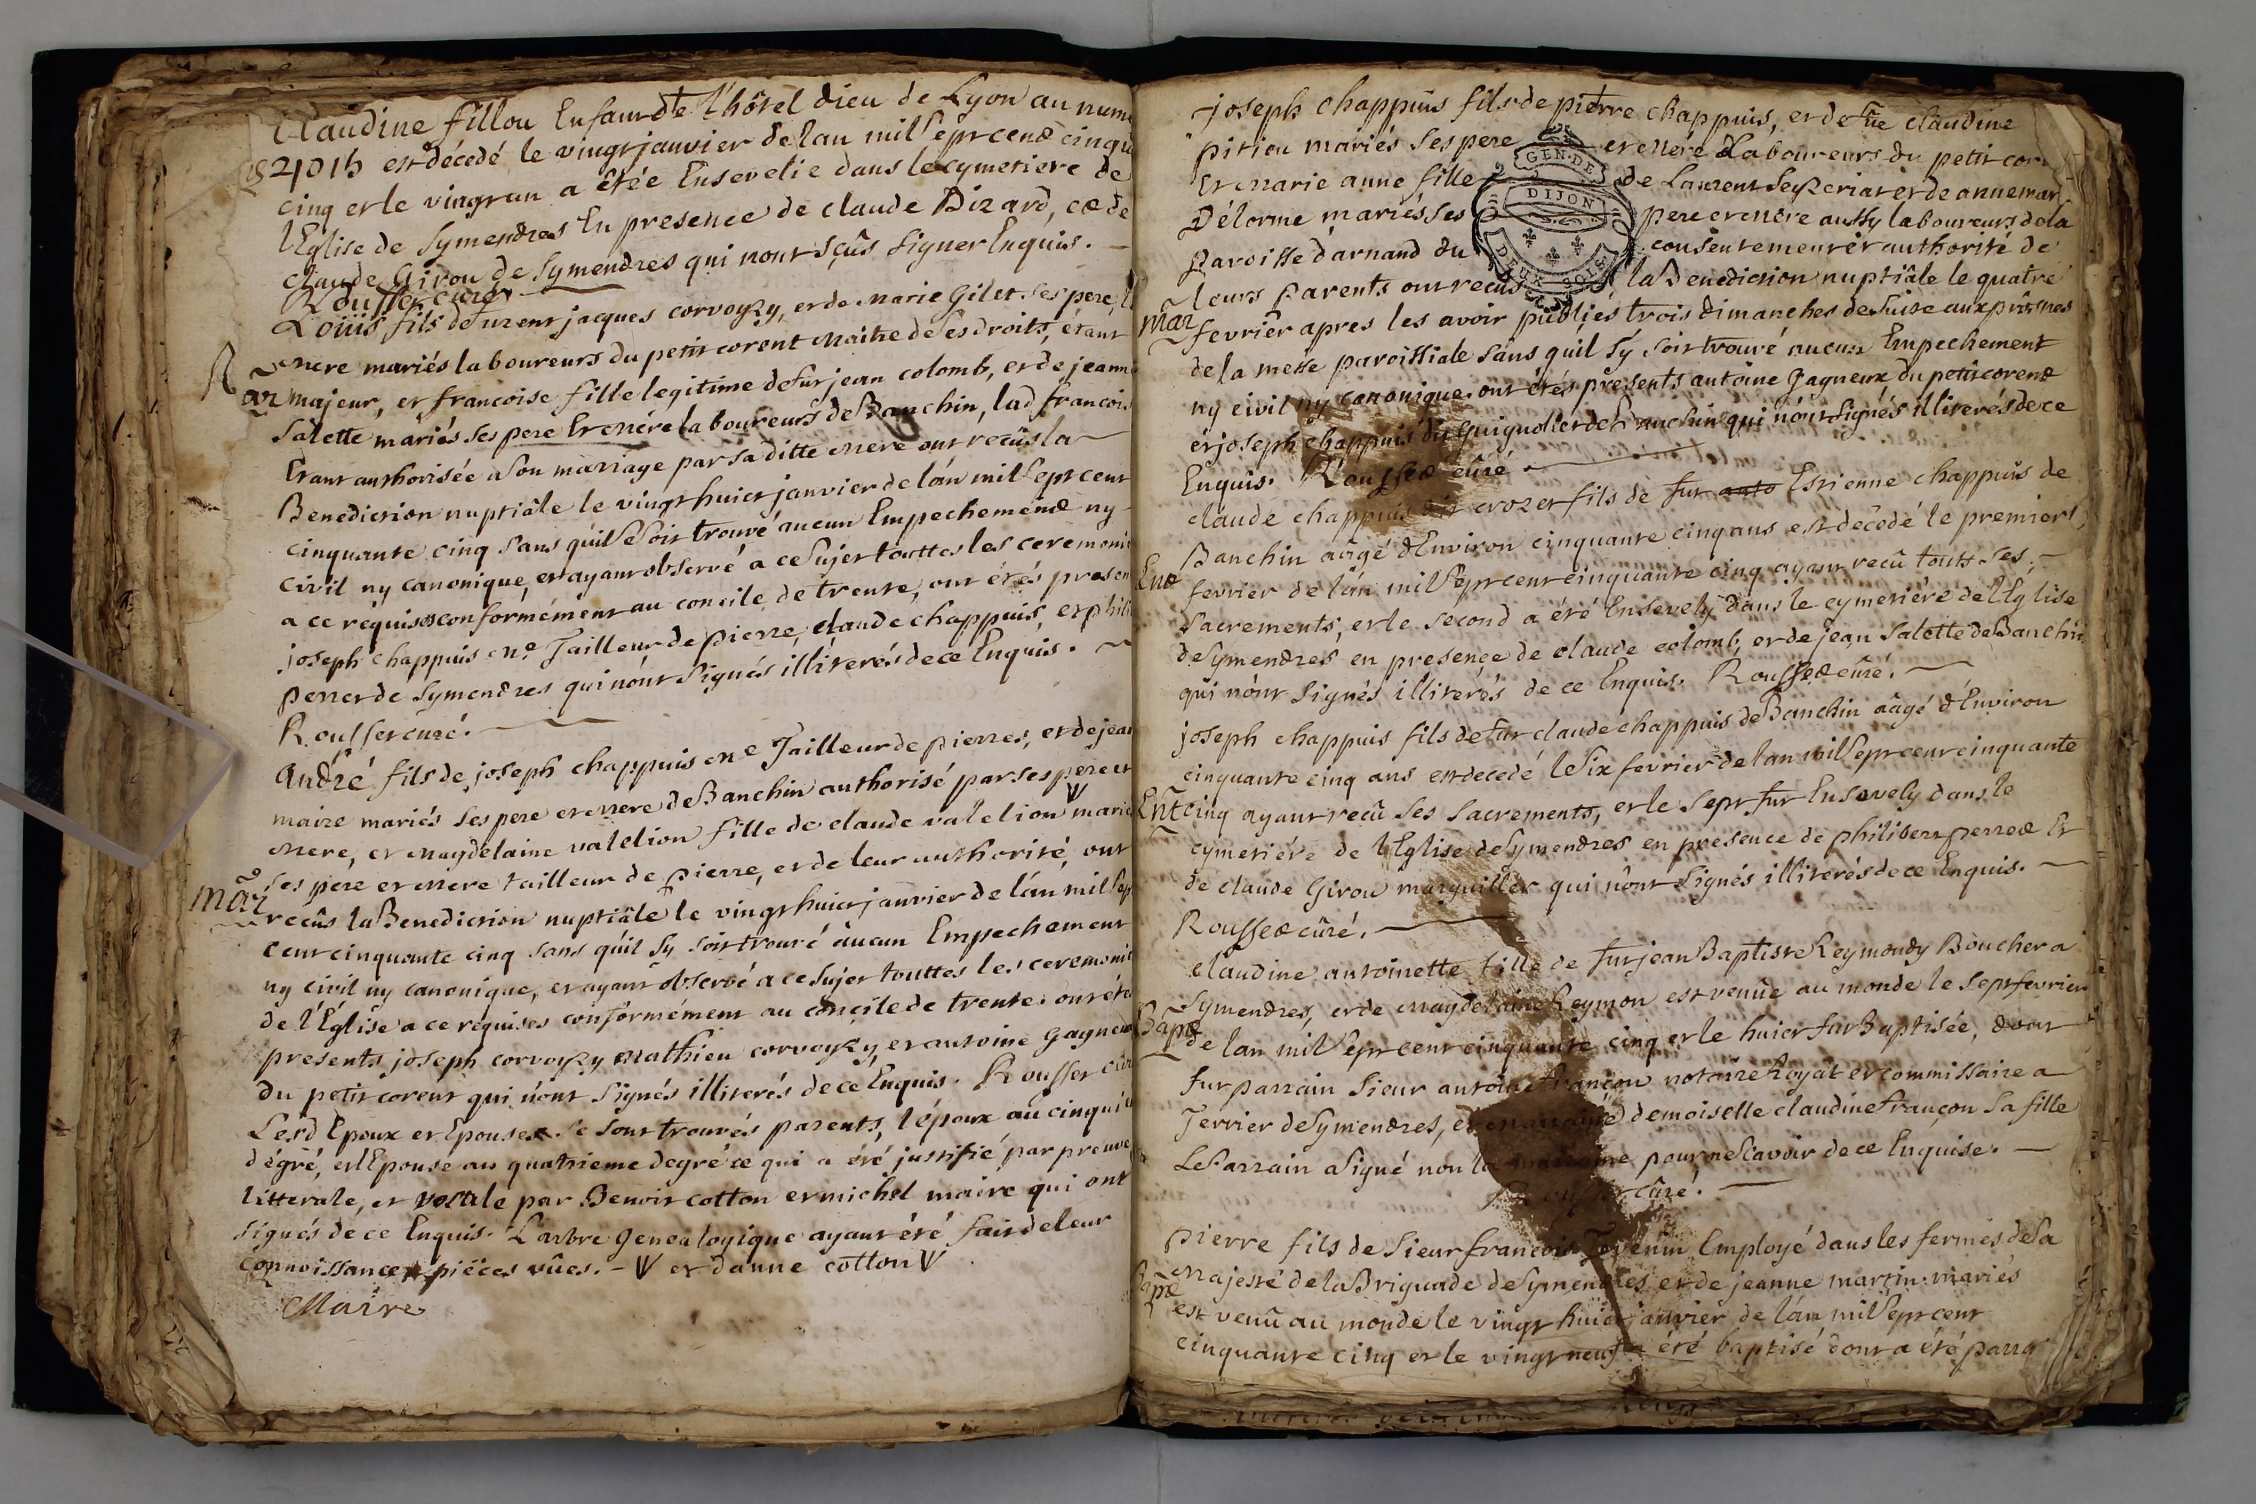 Claudine fillon Enfant de l'hôtel dieu de Lyon au num
est décedé le vingt janvier de lan mil sept cent cinqu
cinq et le vingt un a étée Ensevelie dans le cymetiere de
l'Eglise de Symendres En presence de claude Bizard, et de
claude Girou de Symendres qui n'ont sçus signer Enquis.
Rousset curé
Loüis fils de jacques corvoyzy, et de Marie Gilet ses pere
mere mariés laboureurs du petit corent maitre de ses droits, étant
majeur, et francoise fille legitime de fut jean colomb, et de jeanne
Salette mariés ses pere Et mére laboureurs de Banchin, lad francois
Etant authorisée a son mariage par sa ditte mere ont recûs la
Benediction nuptiâle le vingt huict janvier de lán mil sept cent
cinquante cinq sans quil se soit trouvé aucun Empechement ny
civil ny canonique, et ayant observé a ce sujet touttes les ceremoni
a ce réquises conformément au concile de trente, ont étés presen
joseph chappuis me Tailleur de pierre, claude chappuis, et phili
perret de Symendres qui nónt signés illiterés de ce Enquis.
Rousset curé.
André fils de joseph chappuis me Tailleur de pierres, et de jean
maire mariés ses pere et mere de Banchin authorisé par ses pere et
mere, et Magdelaine valelion fille de claude valelion V marié
Mar ses pere et mere tailleur de pierre, et de leur authorité, ont
recûs la Benediction nuptiâle le vingt huict janvier de lán mil sep
cent cinquante cinq sans quíl sy soit trouvé aucun Empechement
ny civil ny canonique, et ayant observé a ce sujet touttes les ceremoni
de l'Église a ce requises conformément au concile de trente. ont été
presents joseph corvoyzy Mathieu corvoyzy et antoine Gagneu
du petit corent qui nónt signés illiterés de ce Enquis. Rousset cu
Lesd Epoux et Epouse se sont trouvés parents, l'époux au cinqui
dégré, et l'Epouse au quatrieme degré ce qui a été justifié par preuve
litterale, et vocale par Benoit cotton et michel maire qui ont
signés de ce Enquis. L'arbre genealogique ayant été fait de leur
connoissance piéces vûes. - V et danne cotton V
Maire
joseph chappuis fils de pierre chappuis, et de fûe claudine
pitiou mariés ses pere et mére Laboureurs du petit cor
Et Marie anne fille de Laurent et de anne mar
Délorme mariés ses pere et mére aussy laboureurs de la
paroisse d'arnand du consentement et authorité de
GEN. DE
DIJON
DEUX SOLS
leurs parents ont recûs la Benediction nuptiâle le quatre
Mar fevrier apres les avoir publiés trois dimanches de suite aux prônes
de la messe paroissiale sans quil sy soit trouvé aucun Empechement
ny civil ny canonique. ont étés presents antoine Gagneux du petit corent
et joseph chappuis dit Guignolier de Banchin qui nónt signés illiterés de ce
Enquis. Rousset curé
claude chappuis dit crozet fils de fut Estienne chappuis de
Banchin aâgé dEnviron cinquante cinq ans est décedé le premier
fevrier de lán mil sept cent cinquante cinq ayant recû touts ses
sacrements, et le second a été Ensevely dans le cymetiére de l'Eglise
de Symendres en presence de claude colomb, et de jean Salette de Banchin
qui nónt signés illiterés de ce Enquis. Rousset curé.
joseph chappuis fils de fut claude chappuis de Banchin aâgé d'Environ
cinquante cinq ans est decedé le six fevrier de lan mil sept cent cinquante
Ent cinq ayant recû ses sacrements, et le sept fut Ensevely dans le
cymetiére de l'Eglise de Symendres en presence de philibert perret Et
de claude Girou marguillier qui nónt signés illiterés de ce Enquis.
Rousset curé.
claudine antoinette fille de fut jean Baptiste Reymondy Boucher a
Symendres, et de Magdelaine Reymon est venûe au monde le sept fevrier
Bapt de lan mil sept cent cinquante cinq et le huict fut Baptisée, dont
fut parrain Sieur antoine françon notaire Royal et commissaire a
Terrier de Symendres, et marraine demoiselle claudine françon sa fille
Le Parrain a signé non la marraine pour ne sçavoir de ce Enquise.
Rousset curé.
pierre fils de Sieur francois Employé dans les fermes de sa
Majesté de la Briguade de Symendres, et de jeanne martin mariés
Bapt est venû au monde le vingt huict janvier de lán mil sept cent
cinquante cinq et le vingt neuf a été baptisé dont a été parra